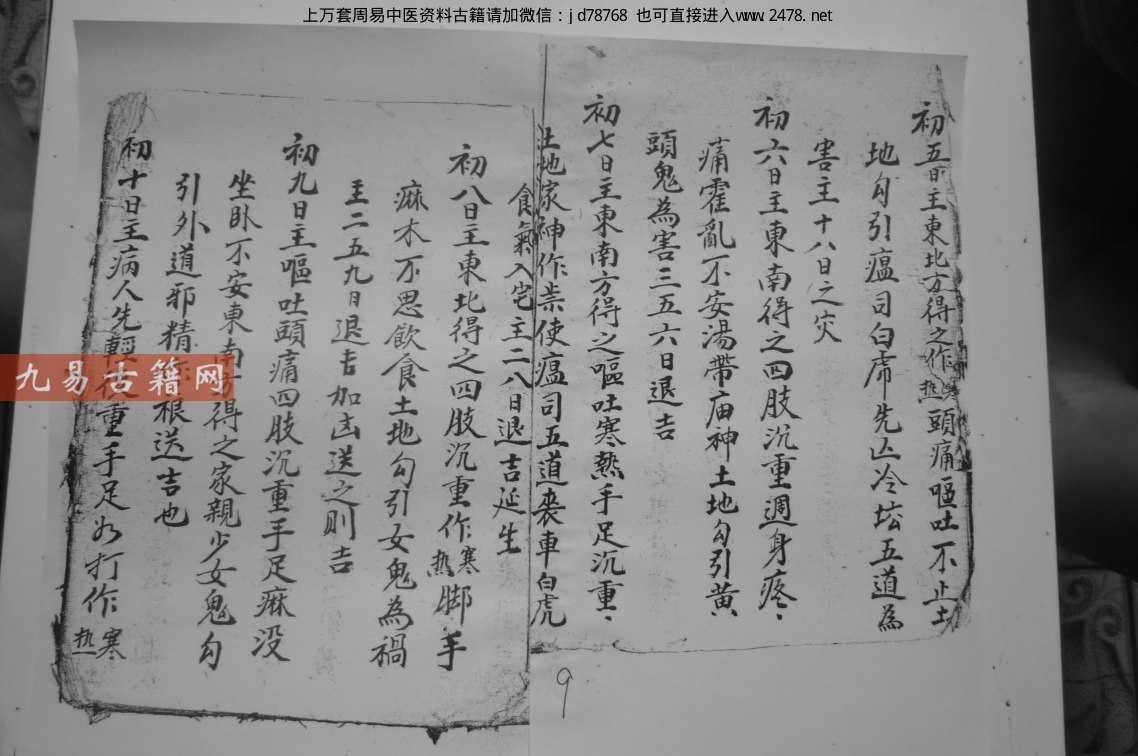 上万套周易中医资料古籍请加微信：jd78768 也可直接进入www.2478.net
初五日主東北方得之作寒热頭痛嘔吐不止土
地勾引瘟司白虎先亾冷坛五道為
害主十八日之灾
初六日主東南得之四肢沉重週身疼、
痛霍亂不安湯帶庙神土地勾引黄
頭鬼為害三五六日退吉
初七日主東南方得之嘔吐寒熱手足沉重、
土地家神作祟使瘟司五道丧車白虎
食氣入宅主二八日退吉延生
初八日主東北得之四肢沉重作寒热脚手
麻木不思飲食土地勾引女鬼為禍
主二五九日退吉加凶送之則吉
初九日主嘔吐頭痛四肢沉重手足麻没
坐卧不安東南方得之家親少女鬼勾
引外道邪精根送吉也
初十日主病人先輕後重手足如打作寒热
九易古籍网
9